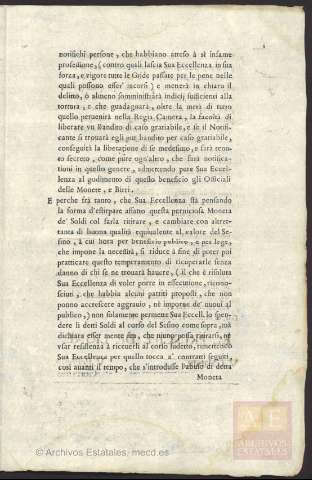 notirichi persone, che habbiano atteso à sì infame
professione, (contro quali lascia Sua Eccellenza in sua
forza, e vigore tutte le Gride passate per le pene nelle
quali possono esser' incorsi) e metterà in chiaro il
delitto, ò almeno somministrarà indicij sufficienti alla
tortura, e che guadagnarà, oltre la metà di tutto
quello peruenirà nella Regia Camera, la facoltà di
liberare vn Bandito di caso gratiabile, e se il Notifi-
cante si trouarà egli pur bandito per caso gratiabile,
conseguirà la liberatione di se medesimo, e sarà tenu-
to secreto, come pure ogn'altro, che farà notificati-
tioni in questo genere, admettendo pure Sua Eccel-
lenza al godimento di questo beneficio gli Officiali
delle Monete, e Birri.
E perche frà tanto, che Sua Eccellenza stà pensando
la forma d'estirpare affatto questa perniciosa Moneta
dè Soldi col farla ritirare, e cambiare con altret-
tanta di buona qualità equiualente al valore del Se-
sino, à cui hora per beneficio publico, e per lege,
che impone la necessità, si riduce à fine di poter poi
pratticare questo temperamento di ricuperarle senza
danno di chi se ne trouarà hauere, (il che è risoluta
Sua Eccellenza di voler porre in essecutione, ricono-
sciuti, che habbia alcuni partiti proposti, che non
ponno accrescere aggrauio, nè imporne de' nuoui al
publico,) non solamente permette Sua Eccell. lo spen-
dere li detti Soldi al corso del Sesino come sopra, mà
dichiara esser mente sua, che niuno possa ritirarsi, ne
vsar resistenza à riceuerli al corso sudetto, rimettendo
Sua Eccellenza per quello tocca a' contratti seguiti
così auanti il tempo, che s'introdusse l'abuso di detta
Moneta
ARCHIVOS
ESTATALES
© Archivos Estatales, mecd.es